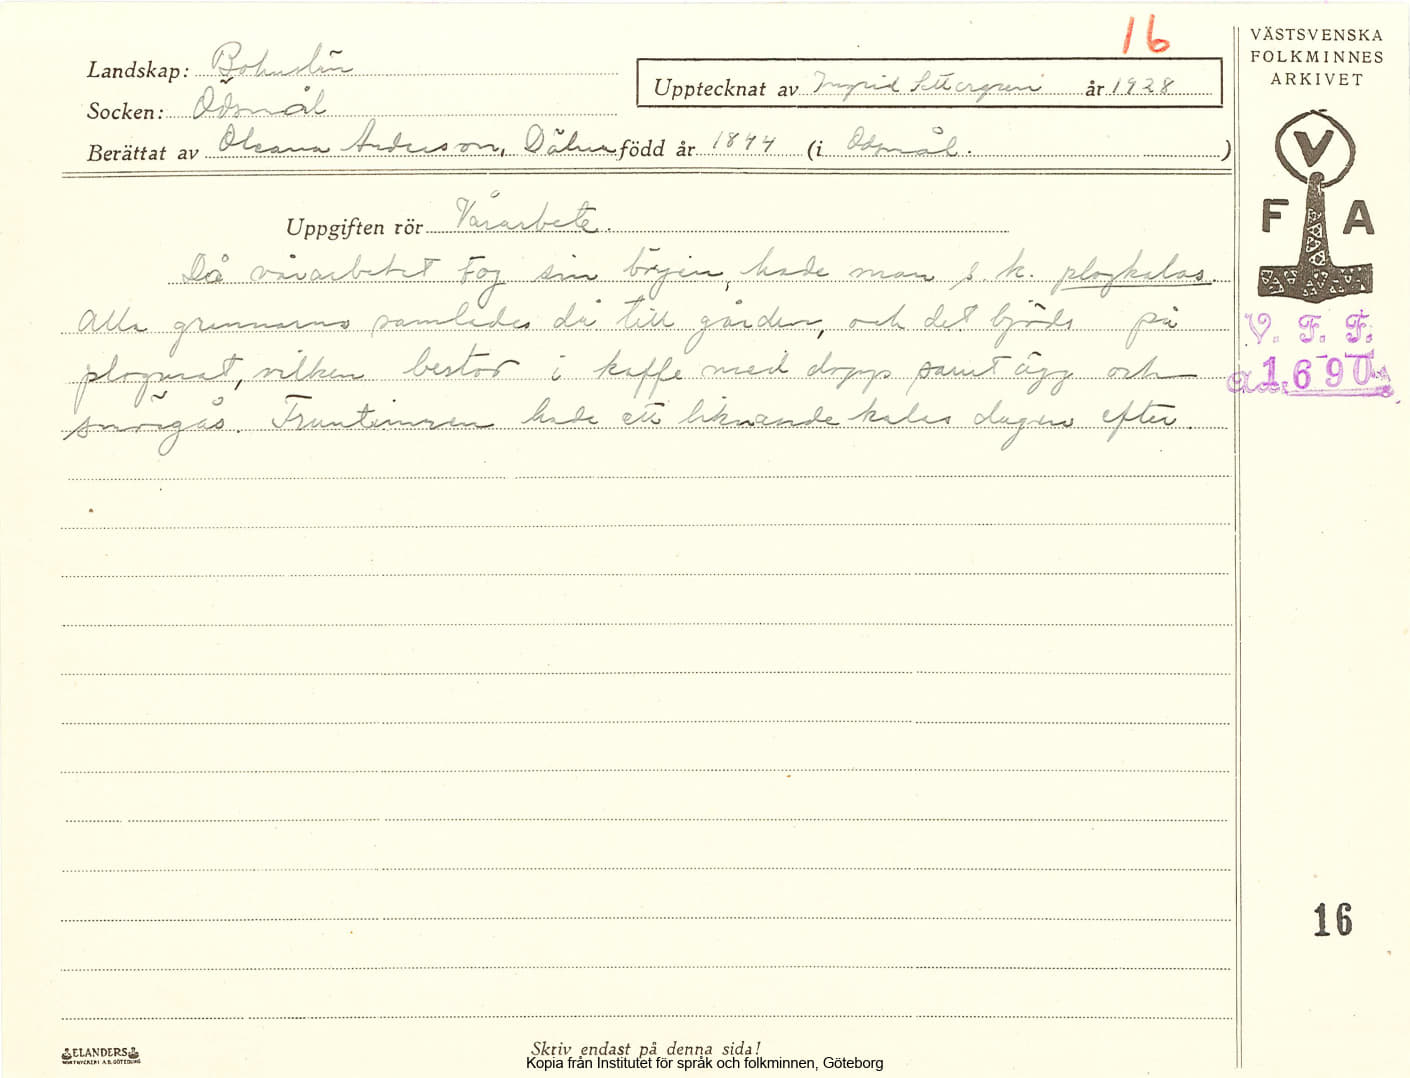 16
VÄSTSVENSKA
FOLKMINNES
ARKIVET
Landskap: Bohuslän
Upptecknat av Ingrid Settergren år 1928
Socken: Ödsmål
Berättat av Oleana Anderson, född år 1844 (i Ödsmål. )
V
F A
Uppgiften rör Vårarbete.
Då vårarbetet tog sin början, hade man s.k. plogkalas.
Alla grannarna samlades då till gården, och det bjöds på
plogmat, vilken bestod i kaffe med dopp samt ägg och
smörgås. Fruntimren hade ett liknande kalas dagen efter.
V. F. F.
1690
16
ELANDERS
Skriv endast på denna sida!
Kopia från Institutet för språk och folkminnen, Göteborg